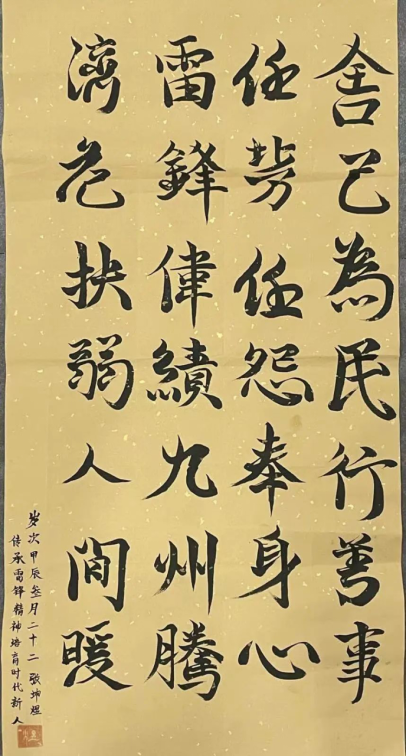 舍己為民行善事
任劳任怨奉身心
雷鋒偉績九州騰
济危扶弱人間暖
岁次甲辰叁月二十二 張坤煜
传承雷锋精神培育时代新人